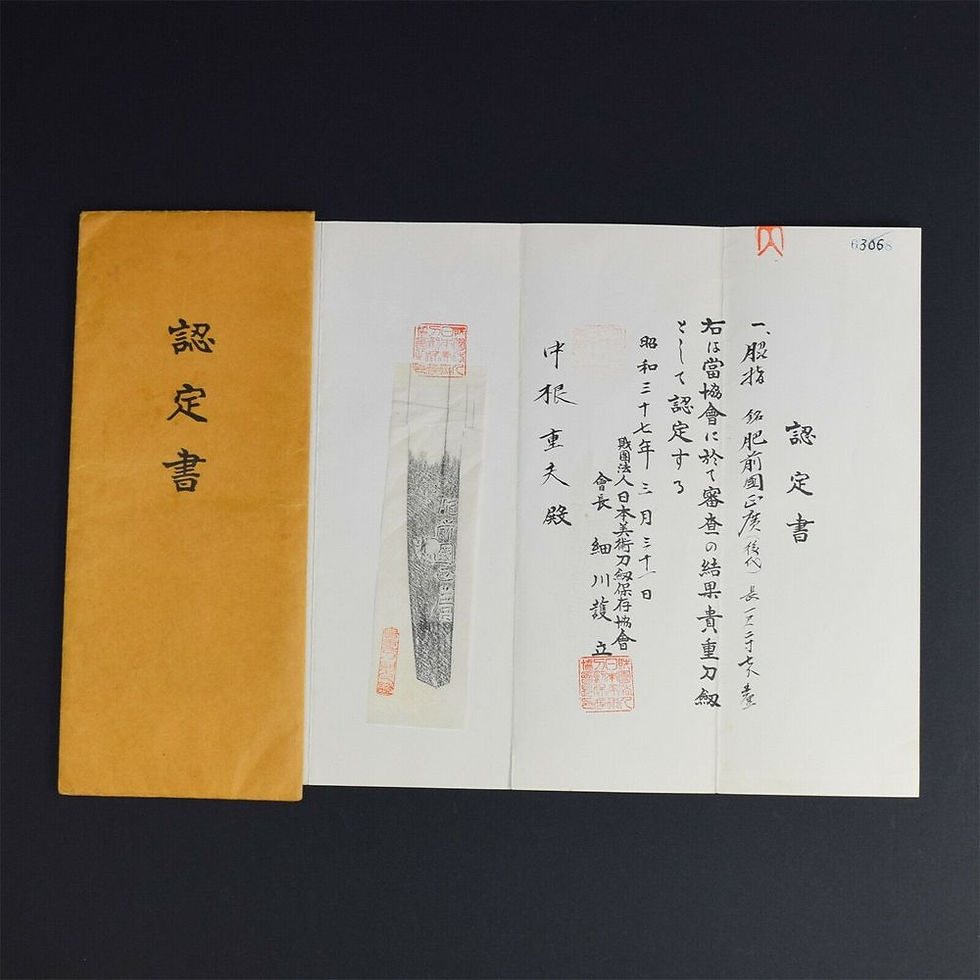 認定書
認定書
一、脇指 銘肥前國正廣(後代) 長一尺二寸七分
右は當協會に於て審査の結果貴重刀劔
として認定する
昭和三十七年三月三十一日
財團法人日本美術刀劔保存協會
會長 細川護立
中根重夫殿
肥前國